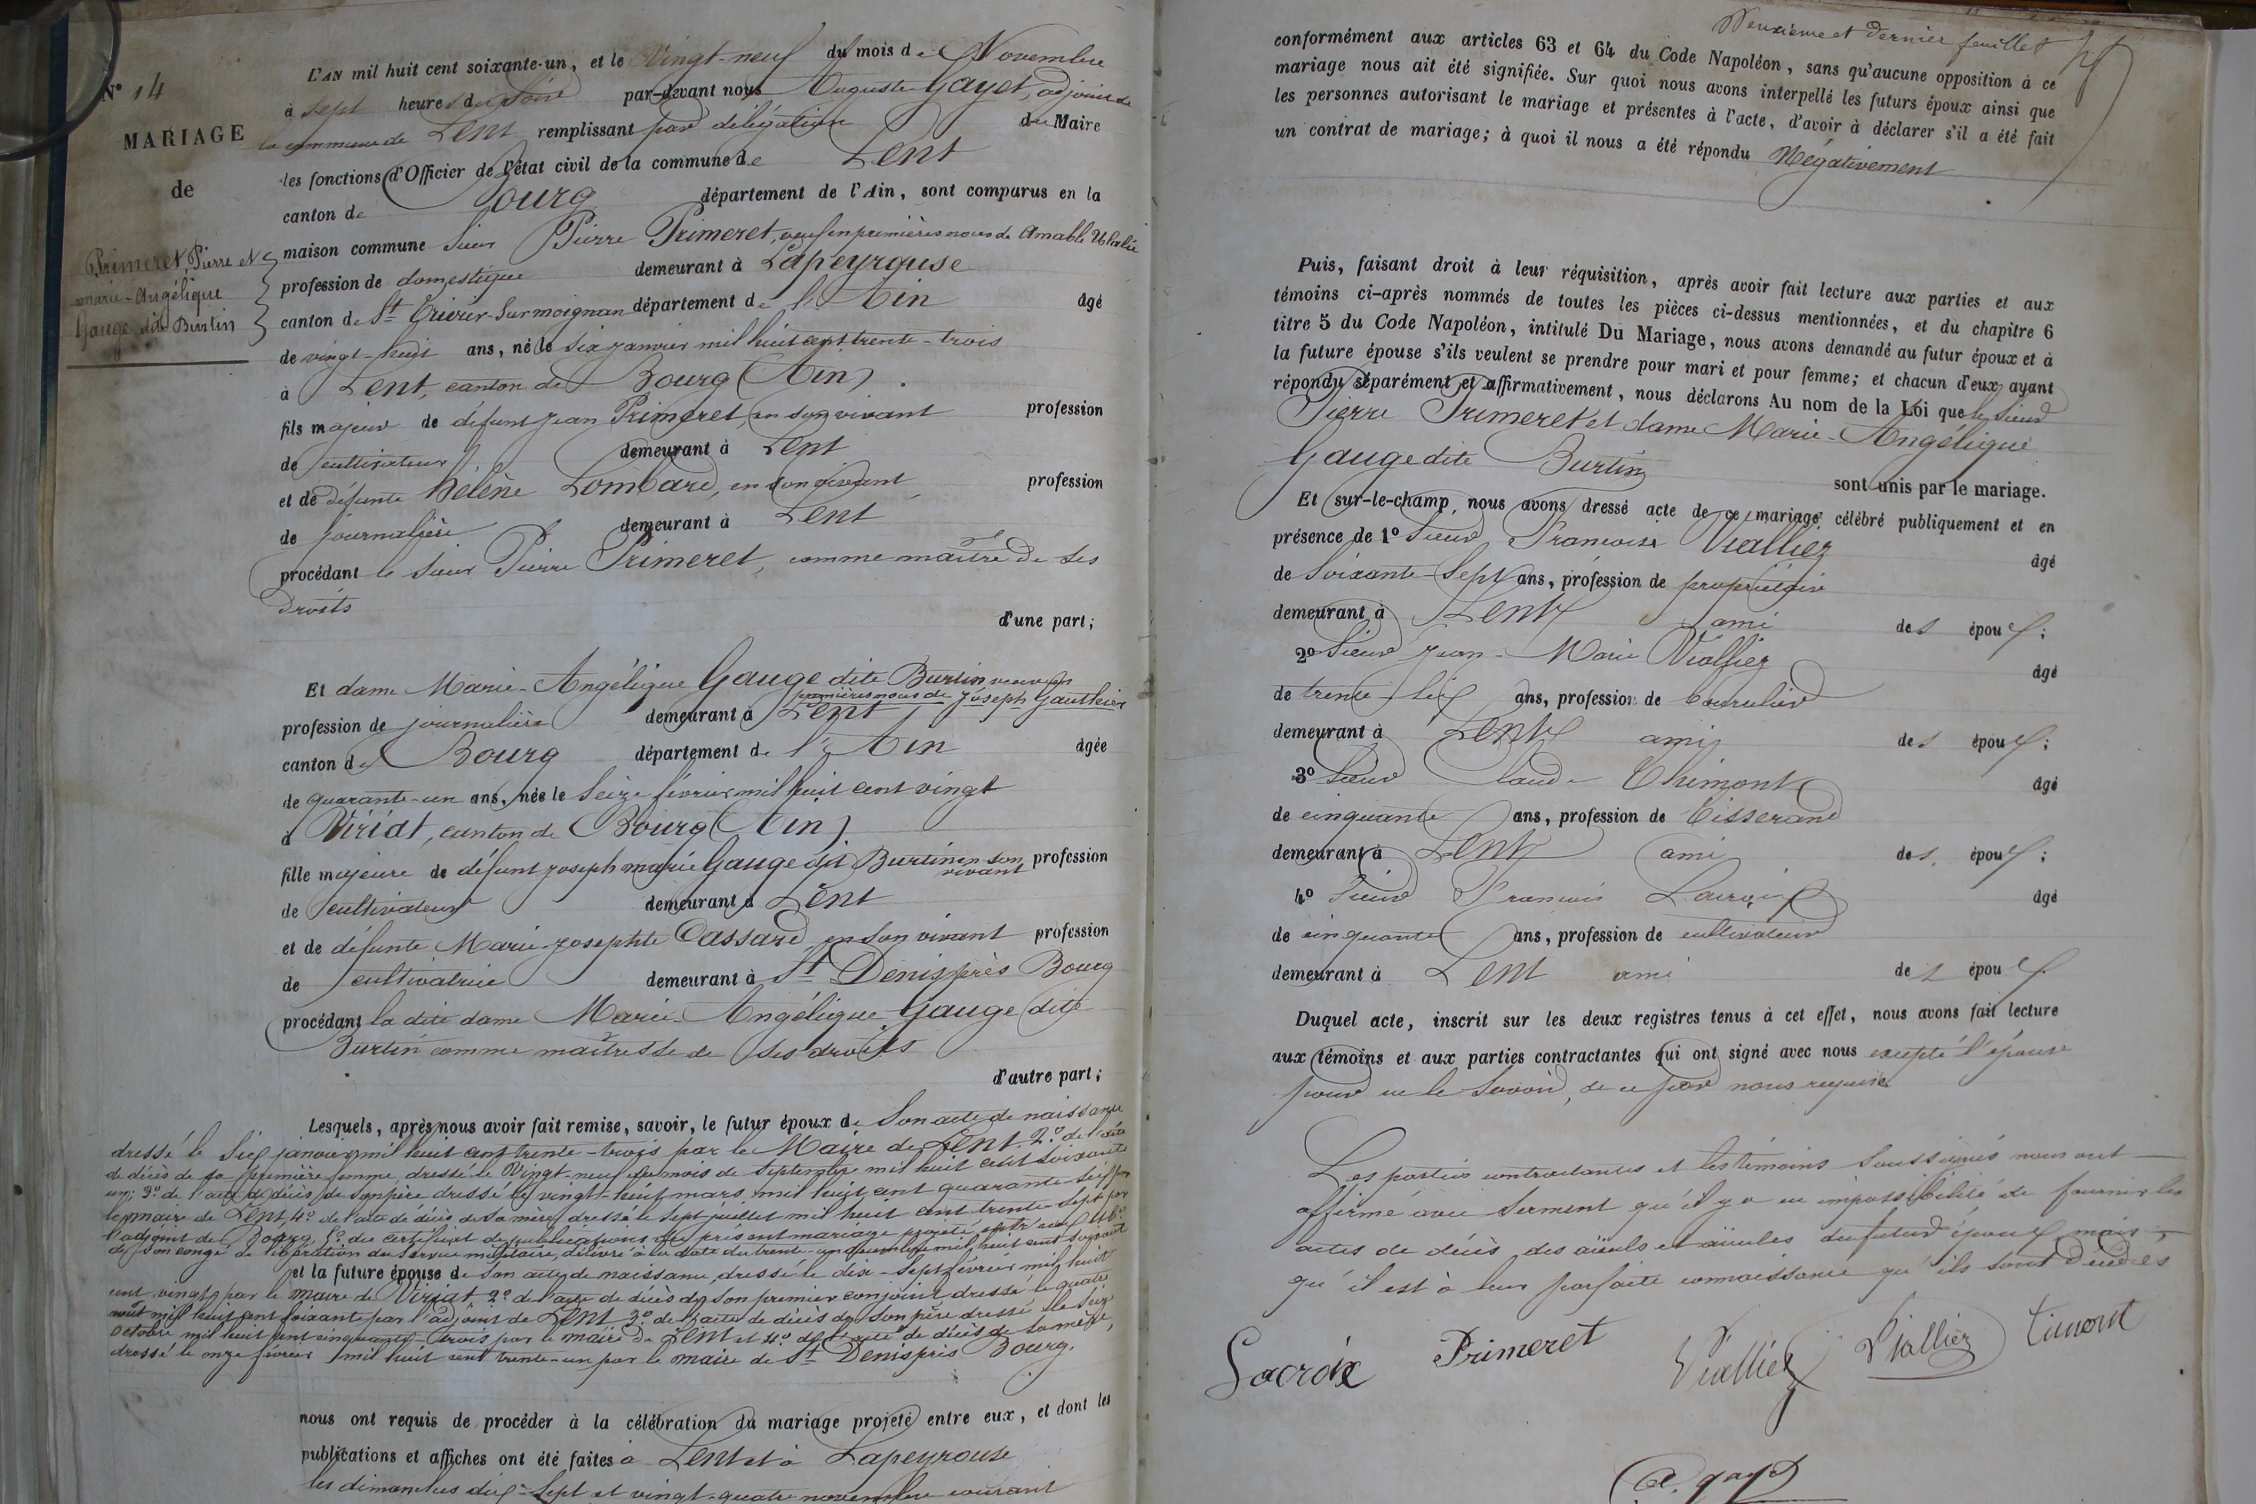 N° 14
MARIAGE
de
Primeret, Pierre et
marie-Angélique
Gauge dite Burtin
L'AN mil huit cent soixante-un, et le Vingt-neuf du mois de Novembre
à sept heures du soir par-devant nous Auguste Gayet, adjoint de
la commune de Lent, remplissant par délégation du Maire
les fonctions d'Officier de l'état civil de la commune de Lent
canton de Bourg département de l'Ain, sont comparus en la
maison commune Sieur Pierre Primeret, veuf en premières noces de Amable
profession de domestique demeurant à Lapeyrouse
canton de St Trivier-Surmoignan département de l'Ain âgé
de vingt-huit ans, né le six janvier mil huit cent trente-trois
à Lent, canton de Bourg (Ain).
fils majeur de défunt jean Primeret, en son vivant profession
de cultivateur demeurant à Lent
et de défunte hélène Lombard, en son vivant profession
de journalière demeurant à Lent
procédant le sieur Pierre Primeret, comme maître de ses
droits
d'une part;
Et dame Marie-Angélique Gauge dite Burtin veuve en
premières noces de joseph Gauthier
profession de journalière demeurant à Lent
canton de Bourg département de l'Ain âgée
de quarante-un ans, née le seize février mil huit cent vingt
à Viriat, canton de Bourg (Ain)
fille majeure de défunt joseph marie Gauge dit Burtin en son vivant profession
de cultivateur demeurant à Lent
et de défunte Marie-josephte Cassard en son vivant profession
de cultivatrice demeurant à St Denis près Bourg
procédant la dite dame Marie-Angélique Gauge dite
Burtin comme maîtresse de ses droits
d'autre part;
Lesquels, après nous avoir fait remise, savoir, le futur époux de Son acte de naissance
dressé le Six janvier mil huit cent trente-trois par le Maire de Lent 2° de l'acte
de décès de sa première femme dressé le Vingt-neuf du mois de septembre mil huit cent soixante
un; 3° de l'acte de décès de son père dressé le vingt-huit mars mil huit cent quarante six par
le maire de Lent, 4° de l'acte de décès de sa mère dressé le sept juillet mil huit cent trente-sept par
l'adjoint de Bourg, 5° du certificat de publications du présent mariage projeté entre eux
de son congé de libération du service militaire, délivré à la date du trente-un décembre mil huit cent soixante
et la future épouse de Son acte de naissance dressé le dix-sept février mil huit
cent vingt par le maire de Viriat 2° de l'acte de décès de son premier conjoint dressé le quatre
août mil huit cent soixante par l'adjoint de Lent 3° de l'acte de décès de son père dressé le seize
octobre mil huit cent cinquante-trois par le maire de Lent et 4° de l'acte de décès de sa mère,
dressé le onze février mil huit cent trente-un par le maire de St Denis près Bourg.
nous ont requis de procéder à la célébration du mariage projeté entre eux, et dont les
publications et affiches ont été faites à Lent et à Lapeyrouse
les dimanches dix-sept et vingt-quatre novembre courant
Deuxième et dernier feuillet
conformément aux articles 63 et 64 du Code Napoléon, sans qu'aucune opposition à ce
mariage nous ait été signifiée. Sur quoi nous avons interpellé les futurs époux ainsi que
les personnes autorisant le mariage et présentes à l'acte, d'avoir à déclarer s'il a été fait
un contrat de mariage; à quoi il nous a été répondu Négativement
Puis, faisant droit à leur réquisition, après avoir fait lecture aux parties et aux
témoins ci-après nommés de toutes les pièces ci-dessus mentionnées, et du chapitre 6
titre 5 du Code Napoléon, intitulé Du Mariage, nous avons demandé au futur époux et à
la future épouse s'ils veulent se prendre pour mari et pour femme; et chacun d'eux ayant
répondu séparément et affirmativement, nous déclarons Au nom de la Loi que le Sieur
Pierre Primeret et dame Marie-Angélique
Gauge dite Burtin sont unis par le mariage.
Et sur-le-champ, nous avons dressé acte de ce mariage célébré publiquement et en
présence de 1° Sieur Francois Viallier âgé
de Soixante-Sept ans, profession de propriétaire
demeurant à Lent ami des époux;
2° Sieur Jean-Marie Viallier âgé
de trente-six ans, profession de bourrelier
demeurant à Lent ami des époux;
3° Sieur Claude Thimont âgé
de cinquante ans, profession de Tisserand
demeurant à Lent ami des époux;
4° Sieur Francois Lacroix âgé
de cinquante ans, profession de cultivateur
demeurant à Lent ami des époux
Duquel acte, inscrit sur les deux registres tenus à cet effet, nous avons fait lecture
aux témoins et aux parties contractantes qui ont signé avec nous excepté l'épouse
pour ne le savoir, de ce par nous requise
Les parties contractantes et les témoins Soussignés nous ont
affirmé avec Serment qu'il y a eu impossibilité de fournir les
actes de décès des aïeuls et aïeules du futur époux mais
qu'il est à leur parfaite connaissance qu'ils sont décédés
Lacroix Primeret Viallier Viallier Timont
A. gayet